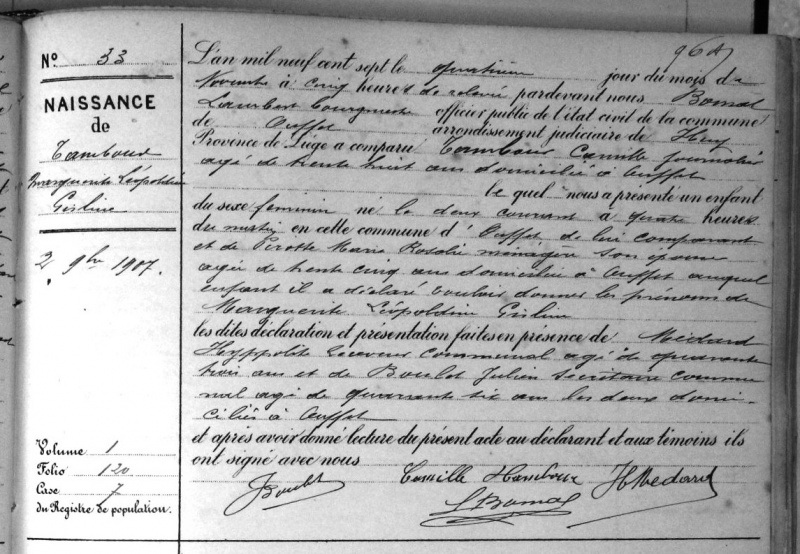 96A
N° 33
NAISSANCE
de
Tambour
Marguerite Léopoldine
Gisline
2 9bre 1907.
Volume 1
Folio 120
Case 7
du Registre de population.
L'an mil neuf cent sept le quatrième jour du mois de
Novembre à cinq heures de relevée pardevant nous Bomal
Lambert Bourgmestre officier public de l'état civil de la commune
de Ouffet arrondissement judiciaire de Huy
Province de Liège a comparu Tambour Camille journalier
agé de trente huit ans domicilié à Ouffet
le quel nous a présenté un enfant
du sexe féminin né le deux courant à quatre heures
du matin en cette commune d'Ouffet de lui comparant
et de Pirotte Marie Rosalie ménagère son épouse
agée de trente cinq ans domiciliée à Ouffet auquel
enfant il a déclaré vouloir donner les prénoms de
Marguerite Léopoldine Gisline
les dites déclaration et présentation faites en présence de Médard
Hyppolite Receveur communal agé de quarante
trois ans et de Boulet Julien secrétaire commu
nal agé de quarante six ans les deux domi-
ciliés à Ouffet
et après avoir donné lecture du présent acte au déclarant et aux témoins ils
ont signé avec nous
JBoulet Camille Tambour HMédard
LBomal